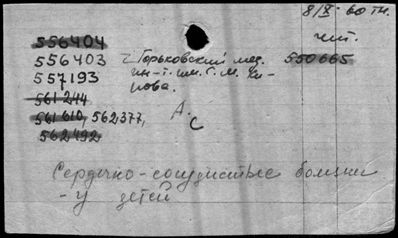 8/X - 60 тг.
чит.
556404
556403
557193
561244
561610, 562377,
562492
Горьковский мед.
ин-т. им. С. М. Ки-
рова.
550665
А.
С
Сердечно-сосудистые болезни
- у детей